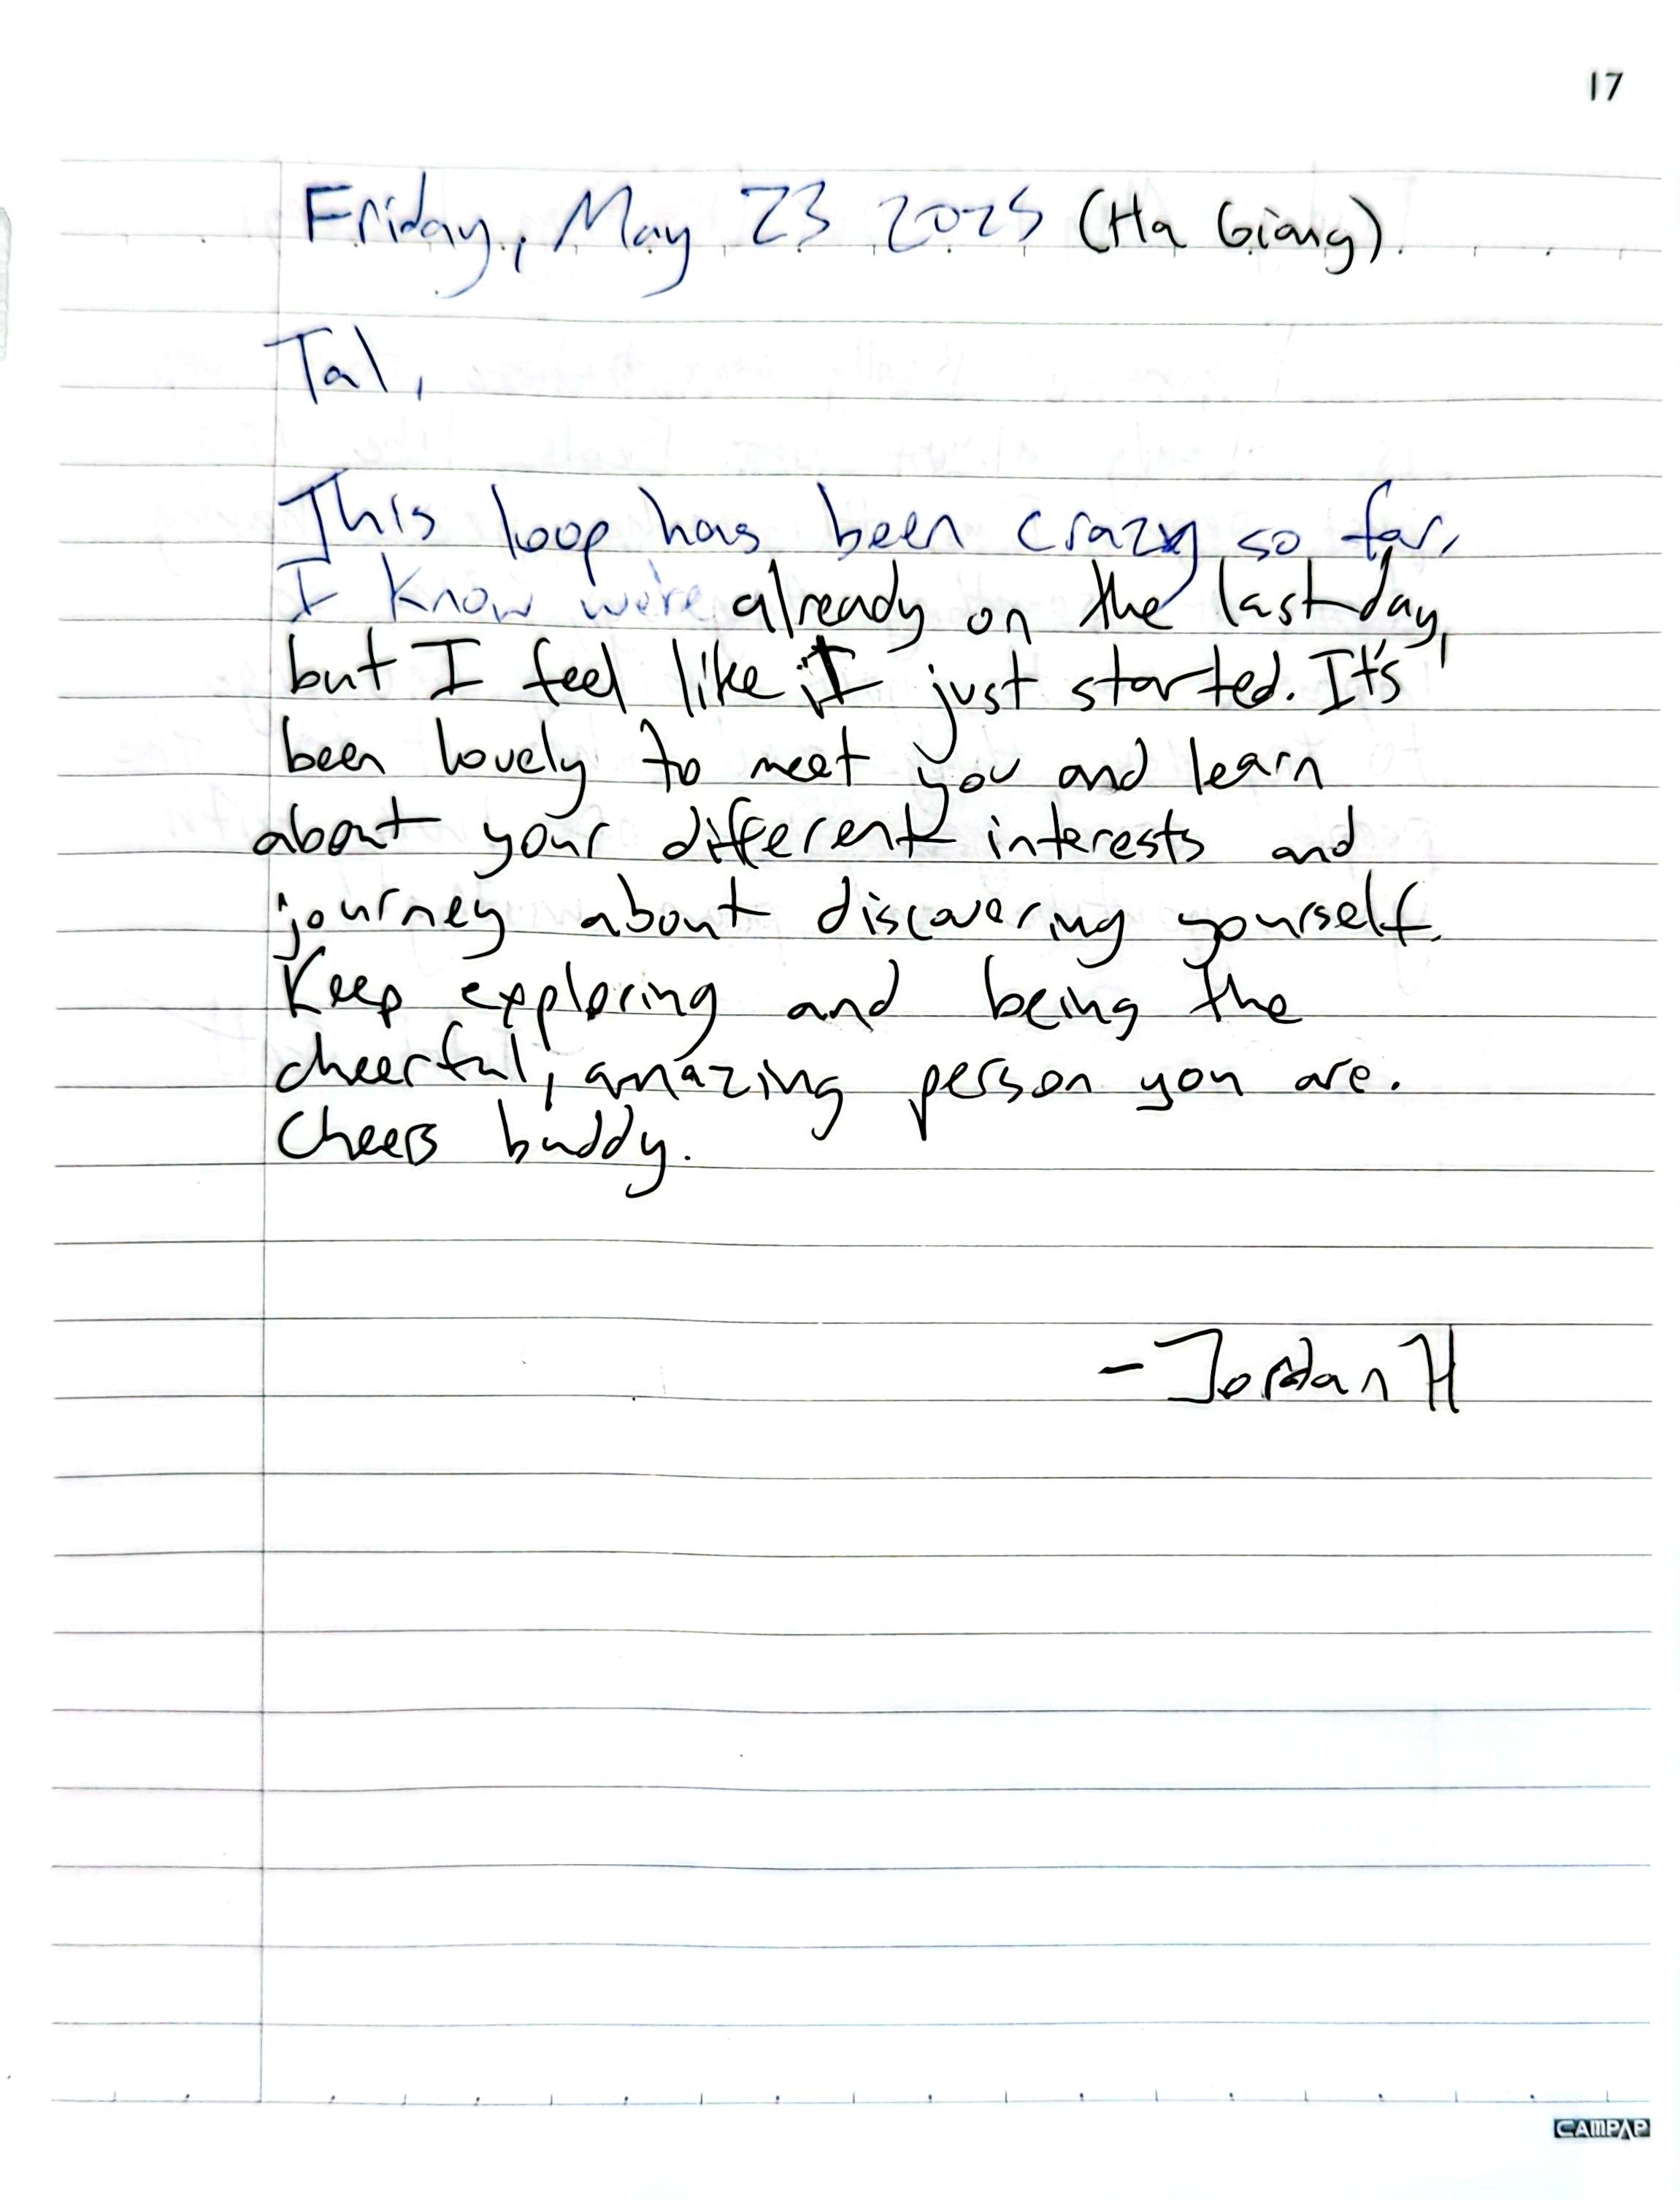 17
Friday, May 23 2025 (Ha Giang).
Tal,
This loop has been crazy so far,
I know we're already on the last day,
but I feel like it just started. It's
been lovely to meet you and learn
about your different interests and
journey about discovering yourself.
Keep exploring and being the
cheerful, amazing person you are.
Cheers buddy.
- Jordan H
CAMPAP